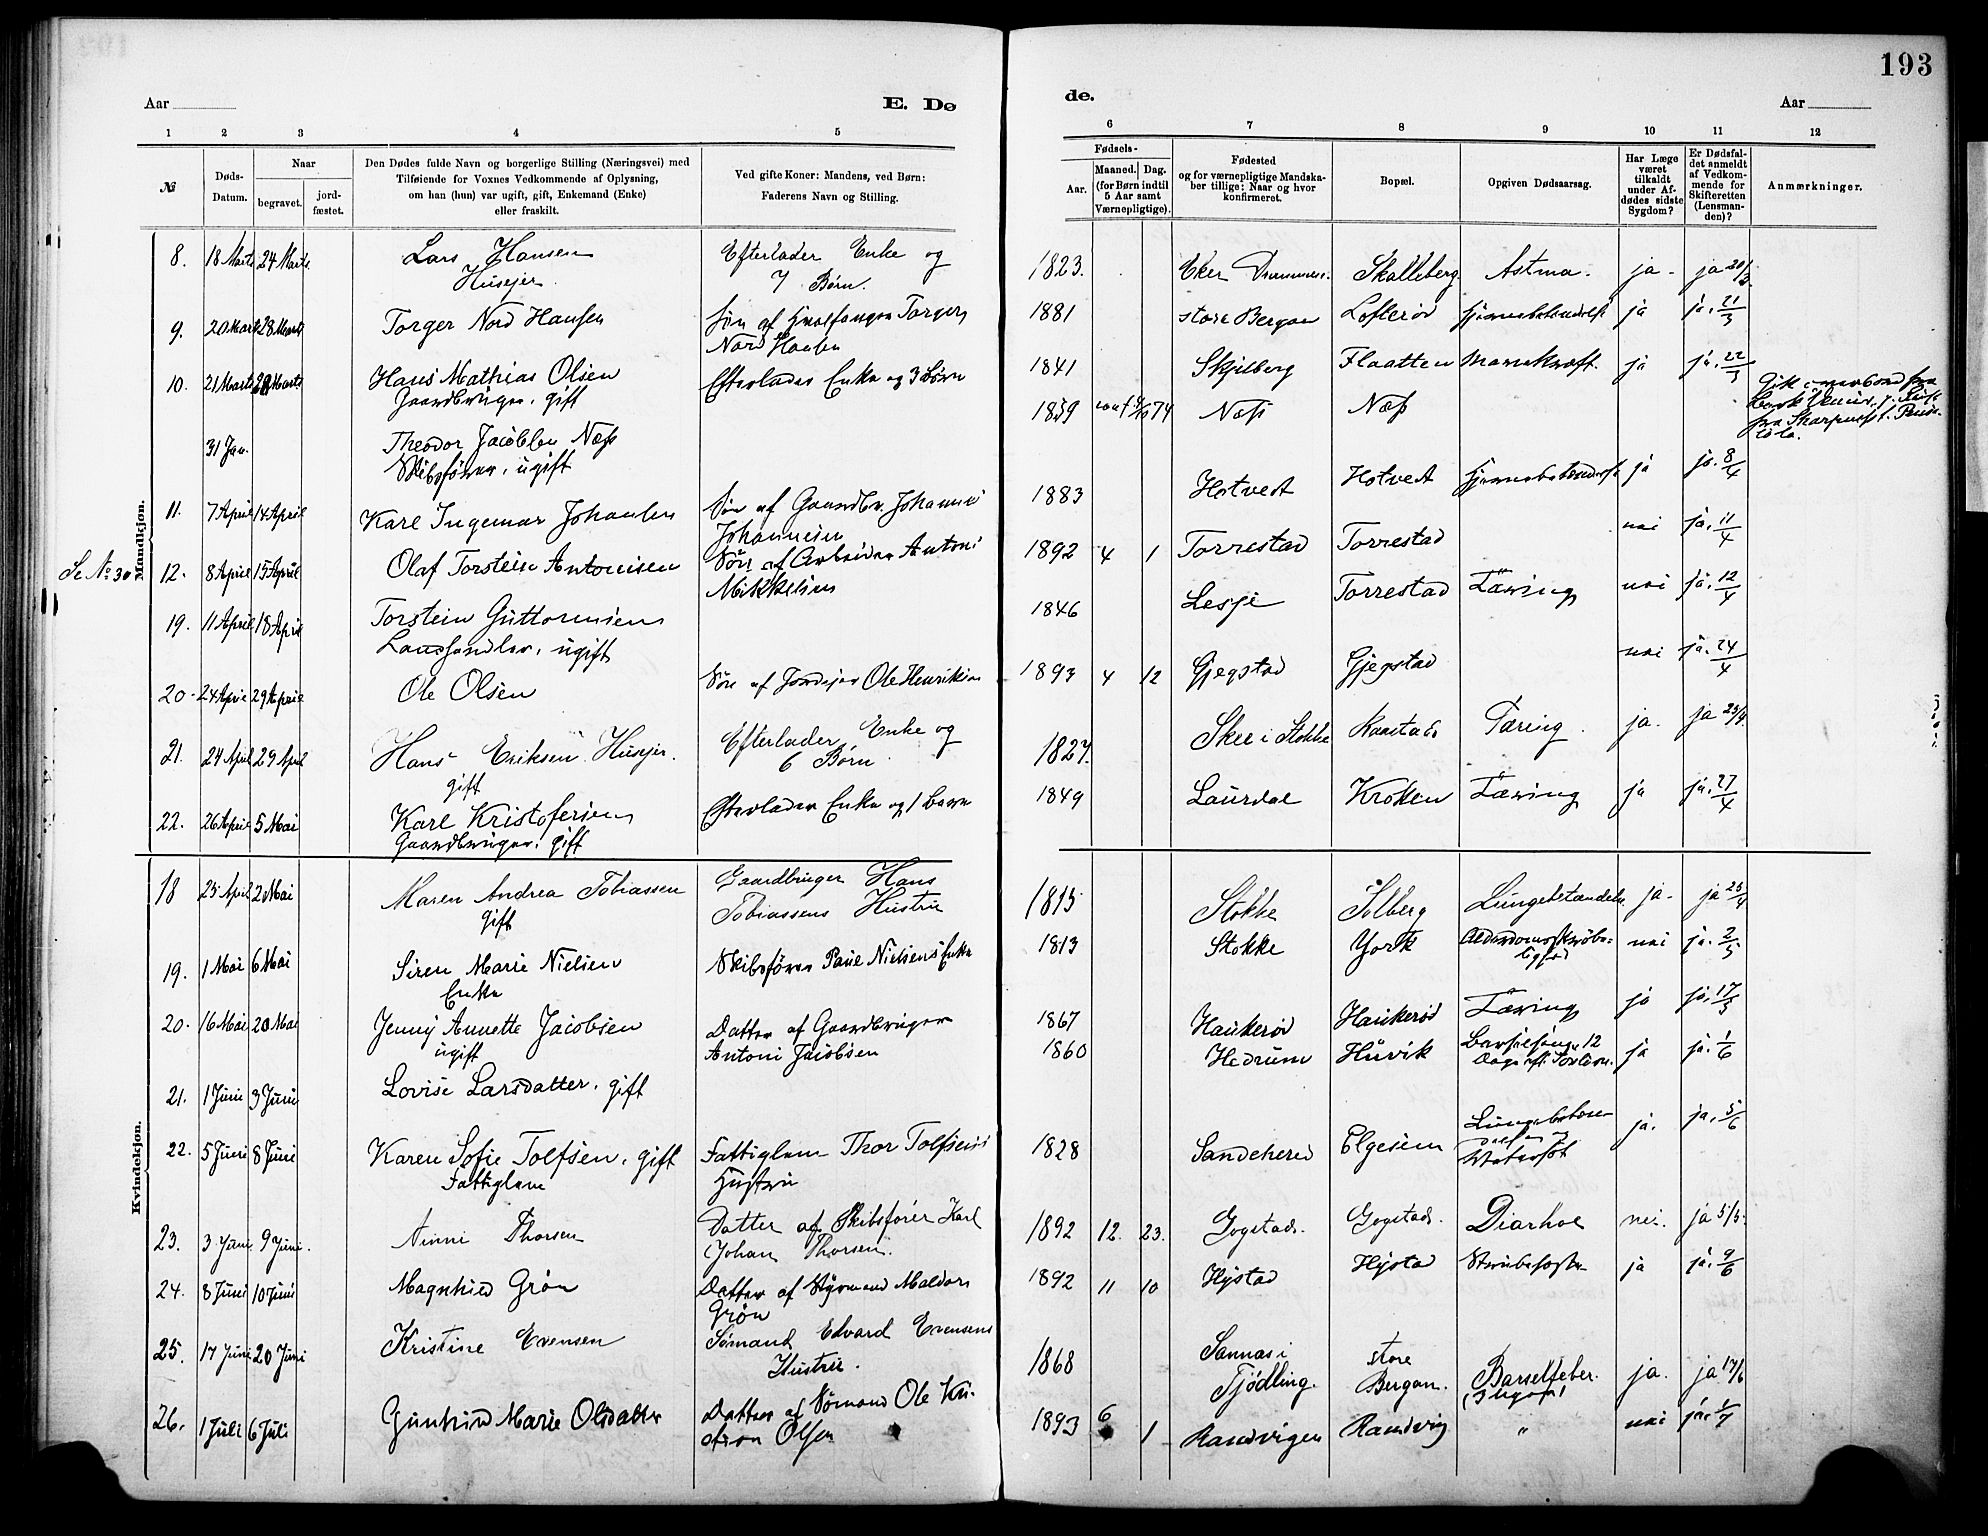 193
Aar
E. Dø
de.
Aar
1 2 3 4 5 6 7 8 9 10 11 12
№
Døds-
Datum.
Naar
begravet.
jord-
fæstet.
Den Dødes fulde Navn og borgerlige Stilling (Næringsvei) med
Tilføiende for Voxnes Vedkommende af Oplysning,
om han (hun) var ugift, gift, Enkemand (Enke)
eller fraskilt.
Ved gifte Koner: Mandens, ved Børn:
Faderens Navn og Stilling.
Fødsels-
Aar.
Maaned.
Dag.
(for Børn indtil
5 Aar samt
Værnepligtige).
Fødested
og for værnepligtige Mandska-
ber tillige: Naar og hvor
konfirmeret.
Bopæl.
Opgiven Dødsaarsag.
Har Læge
været
tilkaldt
under Af-
dødes sidste
Sygdom?
Er Dødsfal-
det anmeldt
af Vedkom-
mende for
Skifteretten
(Lensman-
den)?
Anmærkninger.
Mandkjøn.
8. 18 Marts 24 Marts. Lars Hansen Efterlader Enke og 1823. Eker Drammen. Skalleberg. Astma. ja. ja 20/3
Husejer. 7 Børn.
9. 20 Marts 28 Marts Torger Nord Hansen Søn af Hvalfanger Torger 1881 store Bergan Lofterød Hjernebetændelse ja ja. 21/3
Nord Hansen
10. 21 Marts 28 Marts Hans Mathias Olsen Efterlader Enke og 3 Børn 1841 Skjelberg Flaatten Mavekræft. ja ja. 22/3
Gaardbruger, gift
31 Jan. Theodor Jacobsen Næss 1859 Næss Næss
Skibsfører, ugift
11. 7 April 14 April Karl Ingemar Johansen Søn af Gaardbr. Johannes 1883 Hotvedt Hotvedt Hjernebetændelse ja ja. 8/4
Johannesen
Se No 30 12. 8 April 15 April Olaf Torstein Antonisen Søn af Arbeider Antoni 1892 4 1 Torrestad Torrestad nei ja. 11/4
Mikkelsen
19. 11 April 18 April Torstein Guttormsen 1846 Lesje Torrestad Tæring nei ja. 12/4
Landhandler, ugift
20. 24 April 29 April Ole Olsen Søn af Jordejer Ole Henriksen 1893 4 12 Gjegstad Gjegstad nei ja. 24/4
21. 24 April 29 April Hans Eriksen Husejer. Efterlader Enke og 1827. Skee i Stokke Kaastad Tæring. ja. ja 25/4
gift 6 Børn
22. 26 April 5 Mai Karl Kristofersen Efterlader Enke og 1 Barn 1849 Laurdal Krokken Tæring ja ja. 27/4
Gaardbruger, gift
Kvindekjøn.
18 23 April 2 Mai Maren Andrea Tobiassen Gaardbruger Hans 1815 Stokke Solberg Lungebetændelse. ja. ja 25/4
gift Tobiassens Hustru
19. 1 Mai 6 Mai Siren Marie Nielsen Skibsfører Paul Nielsens Enke 1813 Stokke York Alderdomsskrøbe- nei ja. 2/5
Enke lighed
20. 16 Mai 20 Mai Jenny Annette Jacobsen Datter af Gaardbruger 1867 Haukerød Haukerød Tæring ja ja. 17/5
ugift Antoni Jacobsen
21. 1 Juni 3 Juni Lovise Larsdatter. gift 1860 Hedrum Huvik Barselseng 12 ja ja. 1/6
22. 5 Juni 8 Juni Karen Sofie Tolfsen. gift Fattiglem Thor Tolfsens 1828 Sandeherred Elgesem ja. ja. 5/6
Fattiglem Hustru
23. 3 Juni. 9 Juni. Anni Thorsen Datter af Skibsfører Karl 1892 12. 23. Gogstad. Gogstad. Diarhoe nei. ja 5/5.
Johan Thorsen.
24. 8 Juni 10 Juni Magnhild Grøn Datter af Styrmand Maldor 1892 11 10 Hystad Hystad Strubehoste ja ja. 9/6
Grøn
25. 17 Juni 20 Juni Kristine Evensen Sømand Edvard Evensens 1868 Sannes i store Barselfeber. ja. ja 17/6
Hustru. Tjødling. Bergan.
26. 1 Juli 6 Juli Gunhild Marie Olsdatter Datter af Sømand Ole Kri- 1893 6 1 Randvigen Randvig " nei ja. 1/7
Olsen